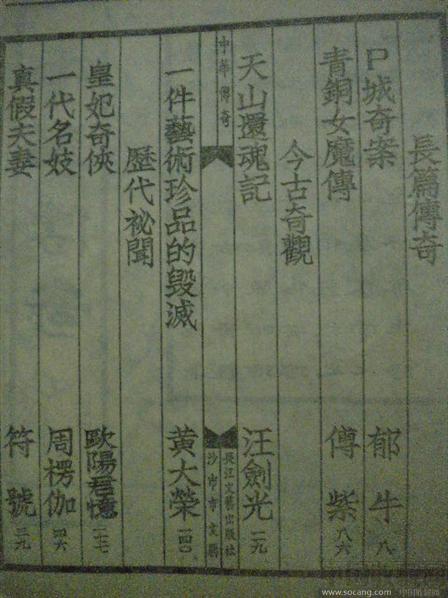 長篇傳奇
P城奇案 郁牛 八
青銅女魔傳 傅紫 八六
今古奇觀
天山還魂記 汪劍光 一九
中華傳奇
長江文藝出版社
沙市市文聯
一件藝術珍品的毀滅 黃大榮 一四〇
歷代祕聞
皇妃奇俠 歐陽君憶
一代名妓 周楞伽 四六
真假夫妻 符號 三九
www.socang.com